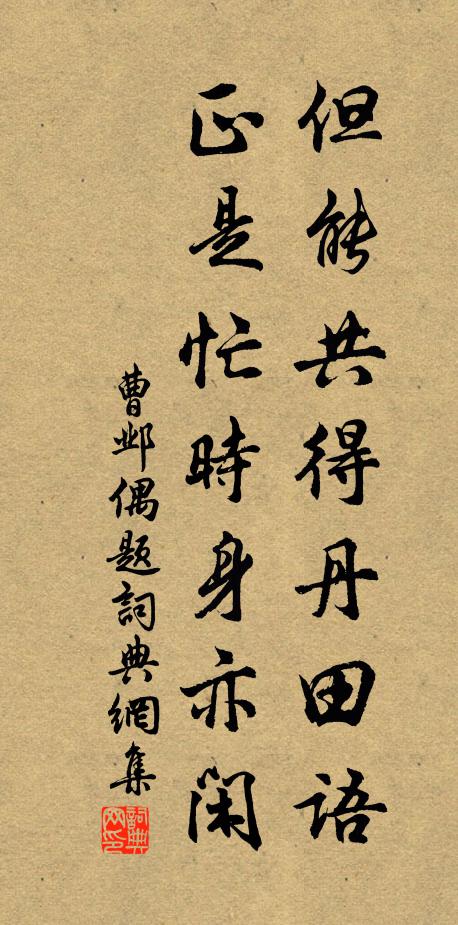 但能共得丹田語
正是忙時身亦閑
曹邺偶题詞典網集
詞典
网印